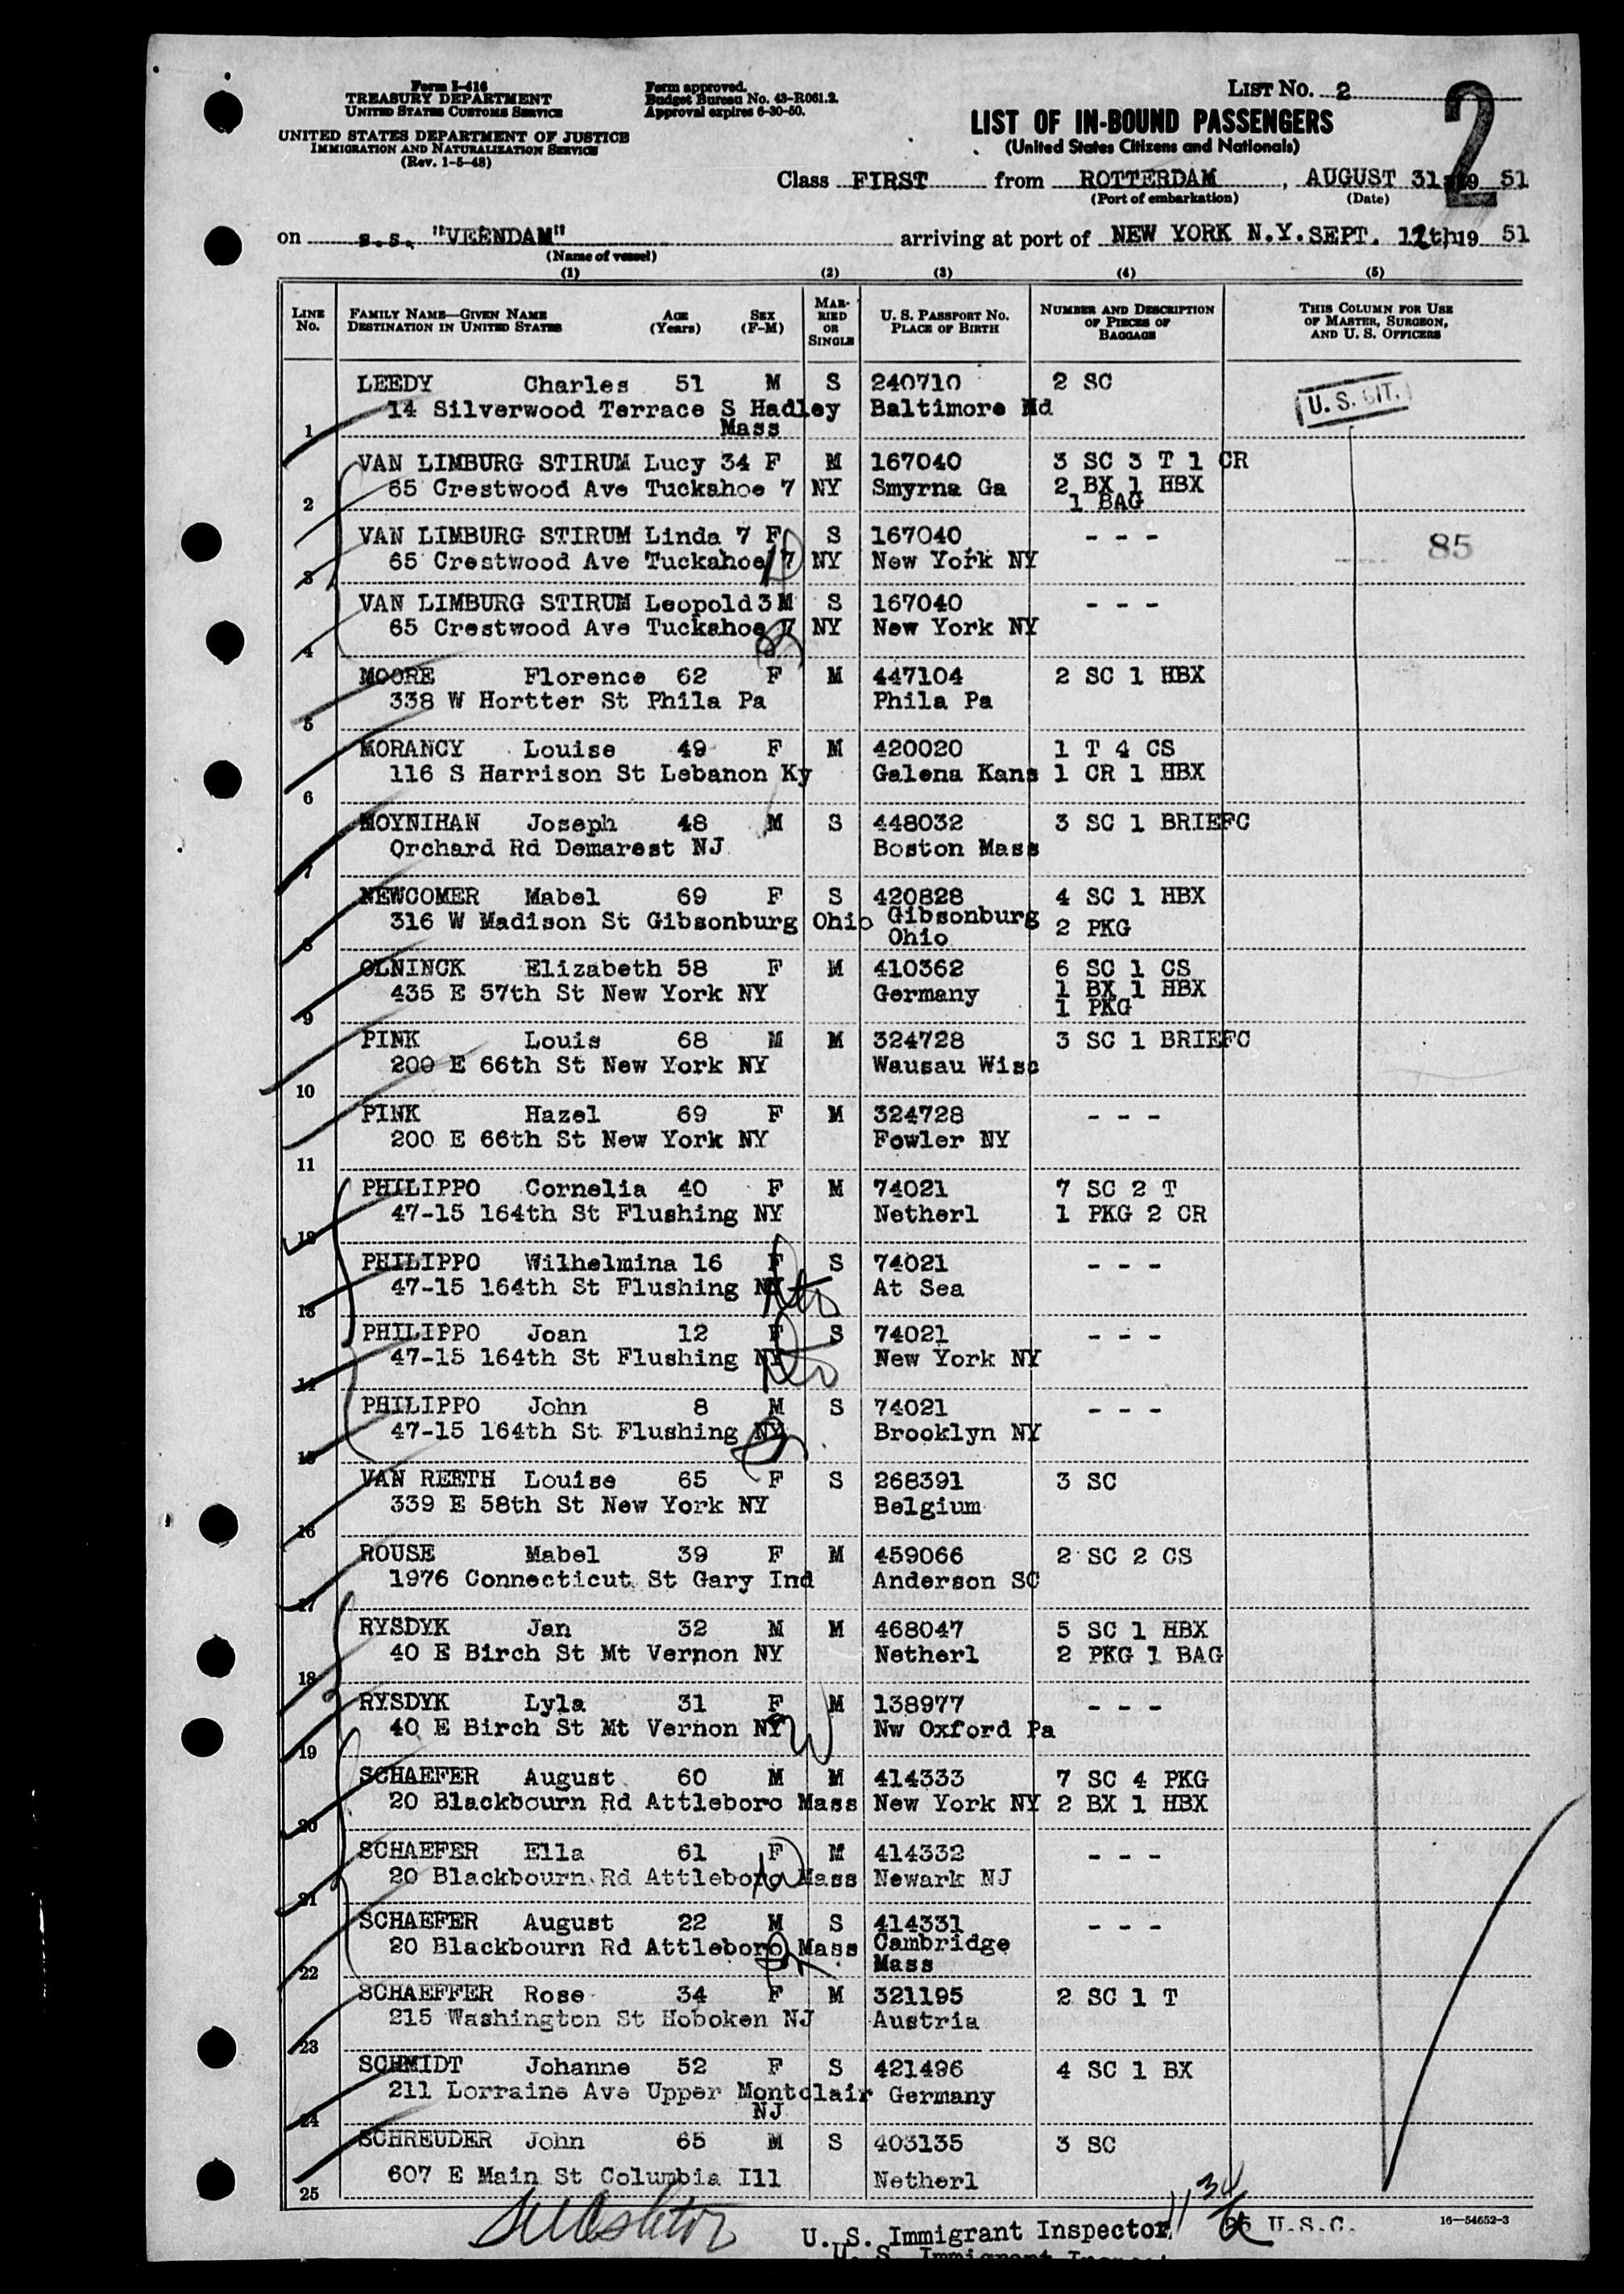 Form I-416
TREASURY DEPARTMENT
UNITED STATES CUSTOMS SERVICE
UNITED STATES DEPARTMENT OF JUSTICE
IMMIGRATION AND NATURALIZATION SERVICE
(Rev. 1-5-48)
Form approved.
Budget Bureau No. 43-R061.2.
Approval expires 6-30-50.
LIST NO. 2
2
LIST OF IN-BOUND PASSENGERS
(United States Citizens and Nationals)
Class FIRST from ROTTERDAM, AUGUST 31 19 51
(Port of embarkation) (Date)
on s.s. "VEENDAM" arriving at port of NEW YORK N.Y. SEPT. th 19 51
(Name of vessel)
(1) (2) (3) (4) (5)
LINE No. FAMILY NAME—GIVEN NAME DESTINATION IN UNITED STATES AGE (Years) SEX (F-M) MARRIED OR SINGLE U. S. PASSPORT NO. PLACE OF BIRTH NUMBER AND DESCRIPTION OF PIECES OF BAGGAGE THIS COLUMN FOR USE OF MASTER, SURGEON, AND U. S. OFFICERS
LEEDY Charles 51 M S 240710 2 SC U. S. CIT.
14 Silverwood Terrace S Hadley Baltimore Md
1 Mass
VAN LIMBURG STIRUM Lucy 34 F M 167040 3 SC 3 T 1 CR
2 65 Crestwood Ave Tuckahoe 7 NY Smyrna Ga 2 BX 1 HBX
1 BAG
VAN LIMBURG STIRUM Linda 7 F S 167040 - - - 85
3 65 Crestwood Ave Tuckahoe 7 NY New York NY
VAN LIMBURG STIRUM Leopold 3 M S 167040 - - -
4 65 Crestwood Ave Tuckahoe 7 NY New York NY
MOORE Florence 62 F M 447104 2 SC 1 HBX
5 338 W Hortter St Phila Pa Phila Pa
MORANCY Louise 49 F M 420020 1 T 4 CS
6 116 S Harrison St Lebanon Ky Galena Kans 1 CR 1 HBX
MOYNIHAN Joseph 48 M S 448032 3 SC 1 BRIEFC
7 Orchard Rd Demarest NJ Boston Mass
NEWCOMER Mabel 69 F S 420828 4 SC 1 HBX
8 316 W Madison St Gibsonburg Ohio Gibsonburg Ohio 2 PKG
OLNINCK Elizabeth 58 F M 410362 6 SC 1 CS
9 435 E 57th St New York NY Germany 1 BX 1 HBX
1 PKG
PINK Louis 68 M M 324728 3 SC 1 BRIEFC
10 200 E 66th St New York NY Wausau Wisc
PINK Hazel 69 F M 324728 - - -
11 200 E 66th St New York NY Fowler NY
PHILIPPO Cornelia 40 F M 74021 7 SC 2 T
12 47-15 164th St Flushing NY Netherl 1 PKG 2 CR
PHILIPPO Wilhelmina 16 F S 74021 - - -
13 47-15 164th St Flushing NY At Sea
PHILIPPO Joan 12 F S 74021 - - -
14 47-15 164th St Flushing NY New York NY
PHILIPPO John 8 M S 74021 - - -
15 47-15 164th St Flushing NY Brooklyn NY
VAN REETH Louise 65 F S 268391 3 SC
16 339 E 58th St New York NY Belgium
ROUSE Mabel 39 F M 459066 2 SC 2 CS
17 1976 Connecticut St Gary Ind Anderson SC
RYSDYK Jan 32 M M 468047 5 SC 1 HBX
18 40 E Birch St Mt Vernon NY Netherl 2 PKG 1 BAG
RYSDYK Lyla 31 F M 138977 - - -
19 40 E Birch St Mt Vernon NY Nw Oxford Pa
SCHAEFER August 60 M M 414333 7 SC 4 PKG
20 20 Blackbourn Rd Attleboro Mass New York NY 2 BX 1 HBX
SCHAEFER Ella 61 F M 414332 - - -
21 20 Blackbourn Rd Attleboro Mass Newark NJ
SCHAEFER August 22 M S 414331 - - -
22 20 Blackbourn Rd Attleboro Mass Cambridge Mass
SCHAEFFER Rose 34 F M 321195 2 SC 1 T
23 215 Washington St Hoboken NJ Austria
SCHMIDT Johanne 52 F S 421496 4 SC 1 BX
24 211 Lorraine Ave Upper Montclair NJ Germany
SCHREUDER John 65 M S 403135 3 SC
25 607 E Main St Columbia Ill Netherl
U. S. Immigrant Inspector U.S.C. 16—54652-3
U. S. Immigrant